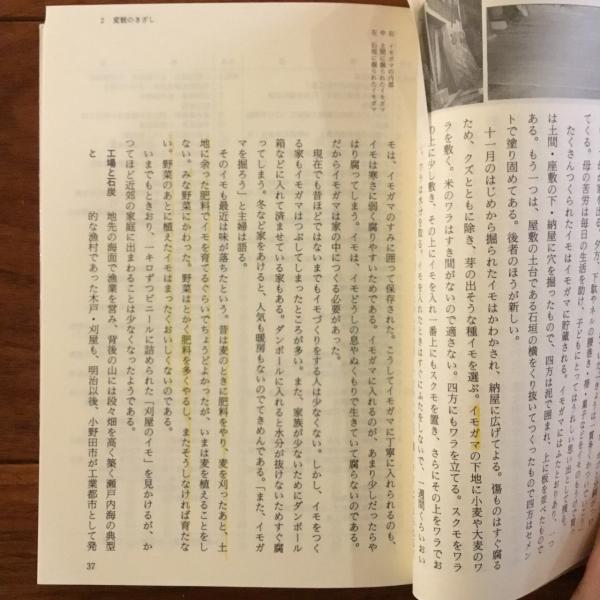 てくる。母の苦労は毎日の生活を助け、子どもにとってはうれしい思い出として残る。
たくさんつくられたイモはイモガマに貯蔵される。イモガマにはふたとおりあり、一つ
は土間・座敷の下・納屋に穴を掘ったもので、四方は泥で囲まれ、上に板を並べたもので
ある。もう一つは、屋敷の土台である石垣の横をくり抜いてつくったもので四方はセメン
トで塗り固めてある。後者のほうが新しい。
十一月のはじめから掘られたイモはかわかされ、納屋に広げてよる。傷ものはすぐ腐る
ため、クズとともに除き、芽の出そうな種イモを選ぶ。イモガマの下地に小麦や大麦のワ
ラを敷く。米のワラはすき間がないので適さない。四方にもワラを立てる。スクモをワラ
の上に少し敷き、その上にイモを入れ一番上にもスクモを置き、さらにその上をワラでお
2 変貌のきざし
右 イモガマの内部
中 土間に掘られたイモガマ
左 石垣に掘られたイモガマ
モは、イモガマのすみに囲って保存された。こうしてイモガマに丁寧に入れられるのも、
イモは寒さに弱く腐りやすいためである。イモガマに入れるのが、あまり少しだったらや
はり腐ってしまう。イモは、イモどうしの息やぬくもりで生きていて腐らないのである。
だからイモガマは家の中につくる必要があった。
現在でも昔ほどではないまでもイモづくりをする人は少なくない。しかし、イモをつく
る家もイモガマはつぶしてしまったところが多い。また、家族が少ないためにダンボール
箱などに入れて済ませている家もある。ダンボールに入れると水分が抜けないためすぐ腐
ってしまう。冬など家をあけると、人気も暖房もないのでてきめんである。「また、イモガ
マを掘ろう」と主婦は語る。
そのイモも最近は味が落ちたという。昔は麦のときに肥料をやり、麦を刈ったあと、土
地に余った肥料でイモを育てるぐらいでちょうどよかったが、いまは麦を植えることをし
ない。みな野菜にかわった。野菜はとかく肥料を多くやるし、またそうしなければ育たな
い。野菜のあとに植えたイモはまったくおいしくないのである。
いまでもときおり、一キロずつビニールに詰められた「刈屋のイモ」を見かけるが、か
つてほど近郊の家庭に出まわることは少なくなったようである。
工場と石炭 地先の海面で漁業を営み、背後の山には段々畑を高く築く瀬戸内海の典型
と 的な漁村であった木戸・刈屋も、明治以後、小野田市が工業都市として発
37